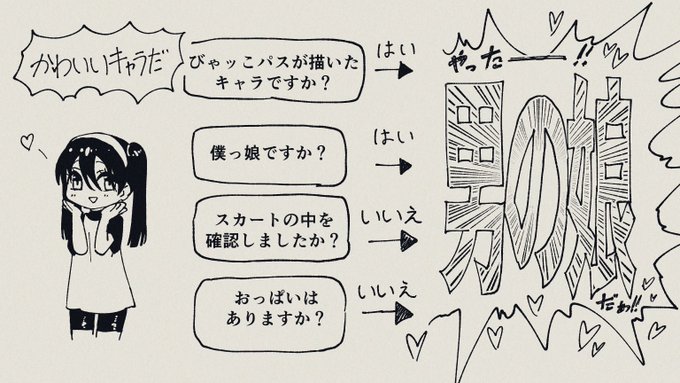 かわいいキャラだ
びゃっこパスが描いた
キャラですか？
はい
やったーーー!!
僕っ娘ですか？
はい
男の娘
だぁっ!!
スカートの中を
確認しましたか？
いいえ
おっぱいは
ありますか？
いいえ